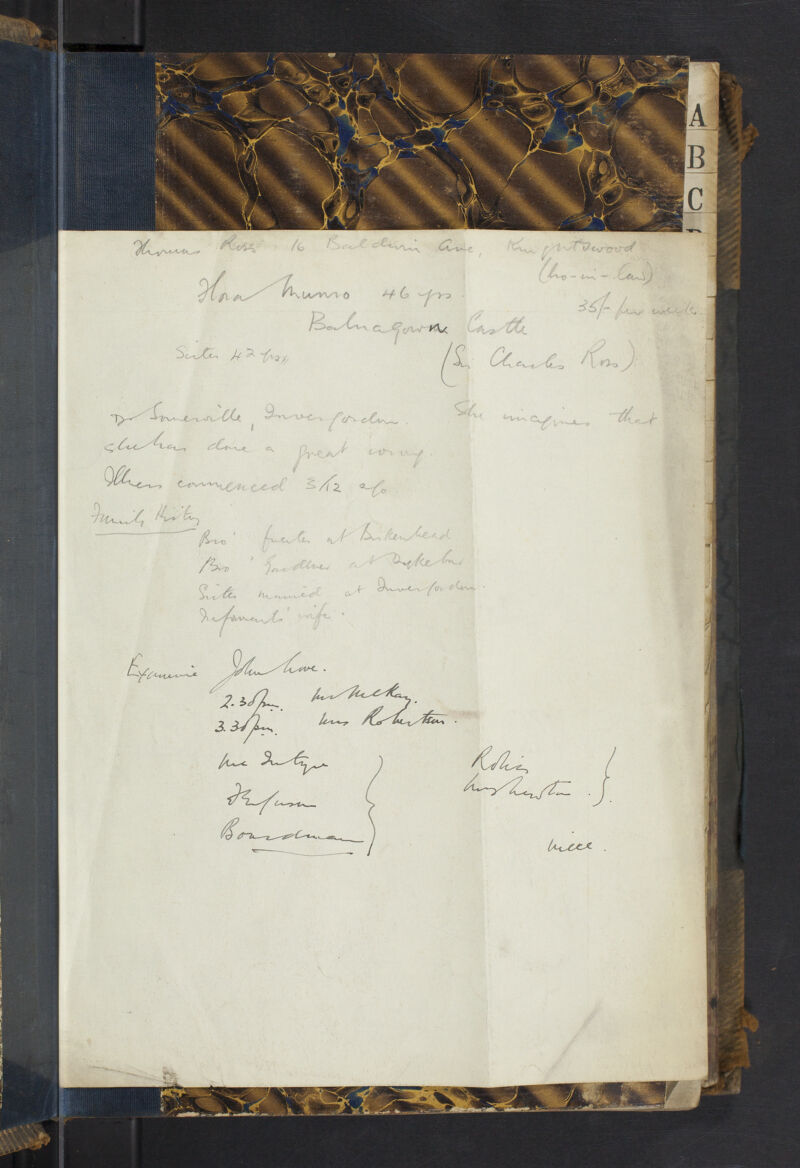 A
B
C
Thomas Ross 16 Baldwin Ave, Knightswood
(bro-in-law)
Flora Munro 46 yrs.
35/- per week.
Balnagown Castle
Sister 42 yrs.
(Sir Charles Ross)
Dr Somerville, Invergordon. She imagines that
she has done a great wrong.
Illness commenced 3/12 ago
Family History
Bro' at Birkenhead
Bro' Gardener at
Sister married at Invergordon.
Informant's wife.
Examine John
2.30 pm. Mr McKay.
3.30 pm. Mrs Robertson.
McIntyre
Ferguson
Boardman